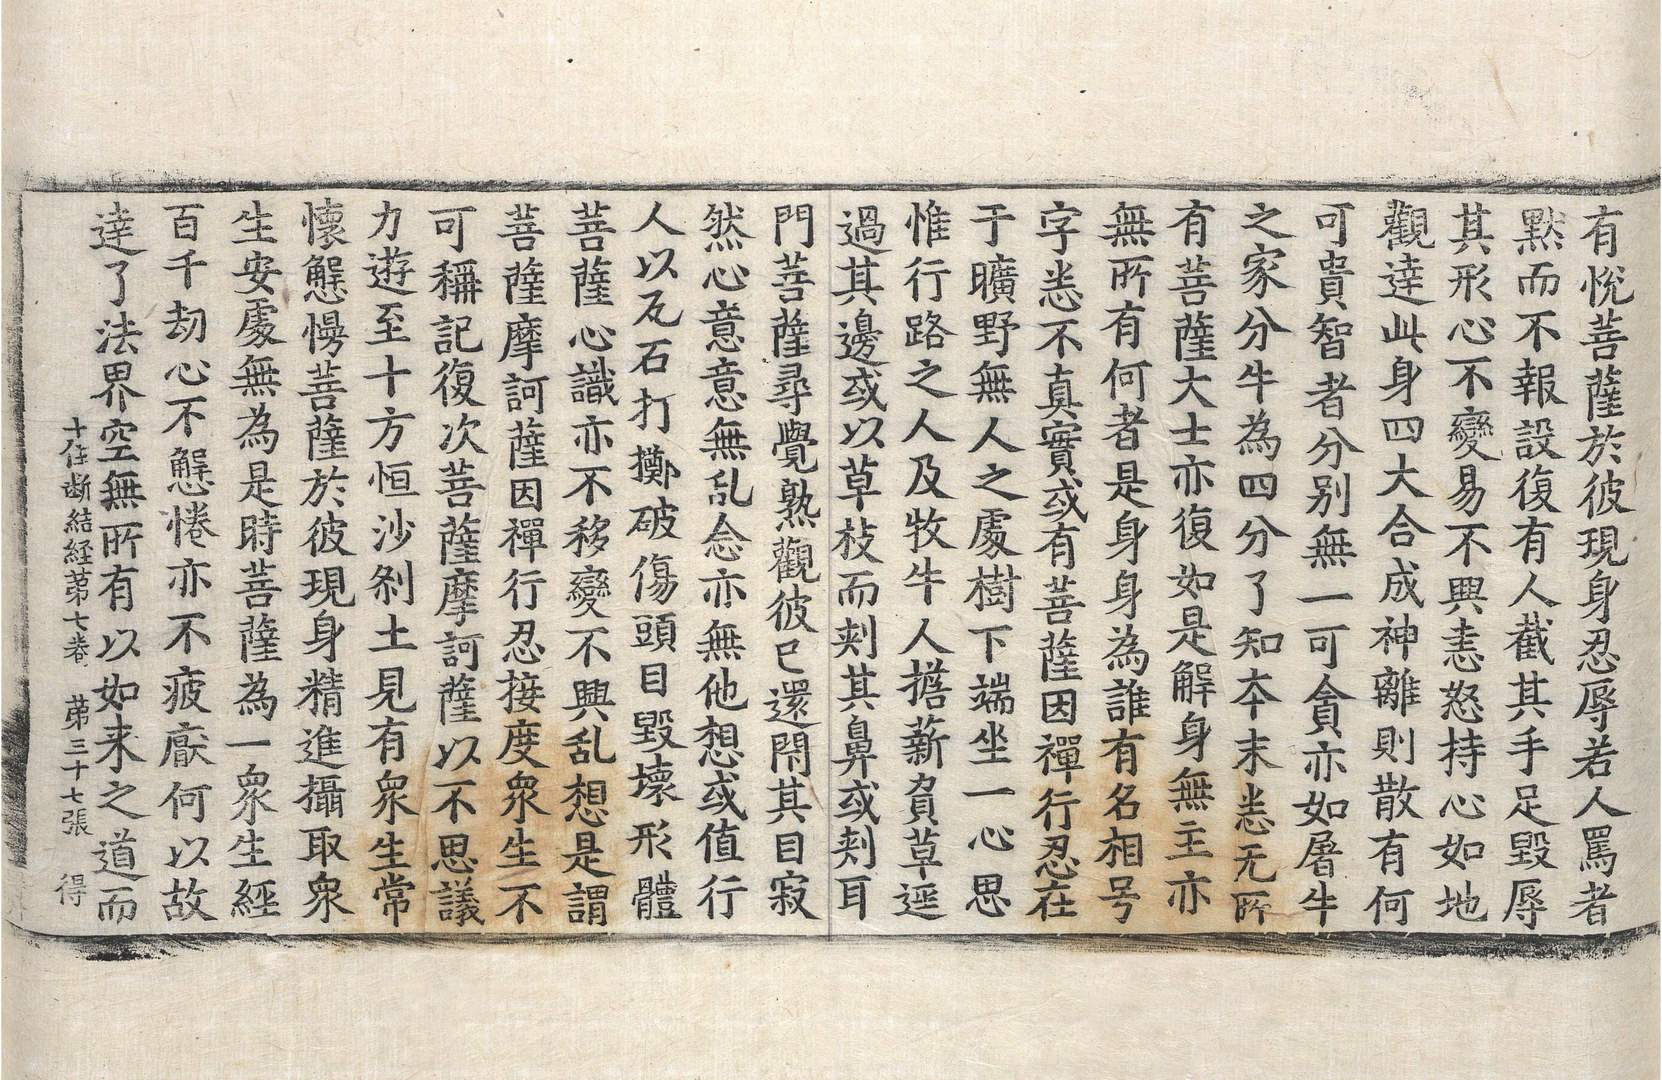 有悅菩薩於彼現身忍辱若人罵者
默而不報設復有人截其手足毀辱
其形心不變易不興恚怒持心如地
觀達此身四大合成神離則散有何
可貴智者分别無一可貪亦如屠牛
之家分牛為四分了知夲末恚无所
有菩薩大士亦復如是解身無主亦
無所有何者是身身為誰有名相号
字恚不真實或有菩薩因禪行忍在
于曠野無人之處樹下端坐一心思
惟行路之人及牧牛人擔薪負草逕
過其邊或以草枝而刾其鼻或刾耳
門菩薩尋覺熟觀彼已還閇其目寂
然心意意無乱念亦無他想或值行
人以瓦石打擲破傷頭目毀壞形體
菩薩心識亦不移變不興乱想是謂
菩薩摩訶薩因禪行忍接度眾生不
可稱記復次菩薩摩訶薩以不思議
力遊至十方恒沙刹土見有眾生常
懷懈慢菩薩於彼現身精進攝取眾
生安處無為是時菩薩為一眾生經
百千劫心不懈惓亦不疲猒何以故
達了法界空無所有以如来之道而
十住断結経苐七卷 苐三十七張 得